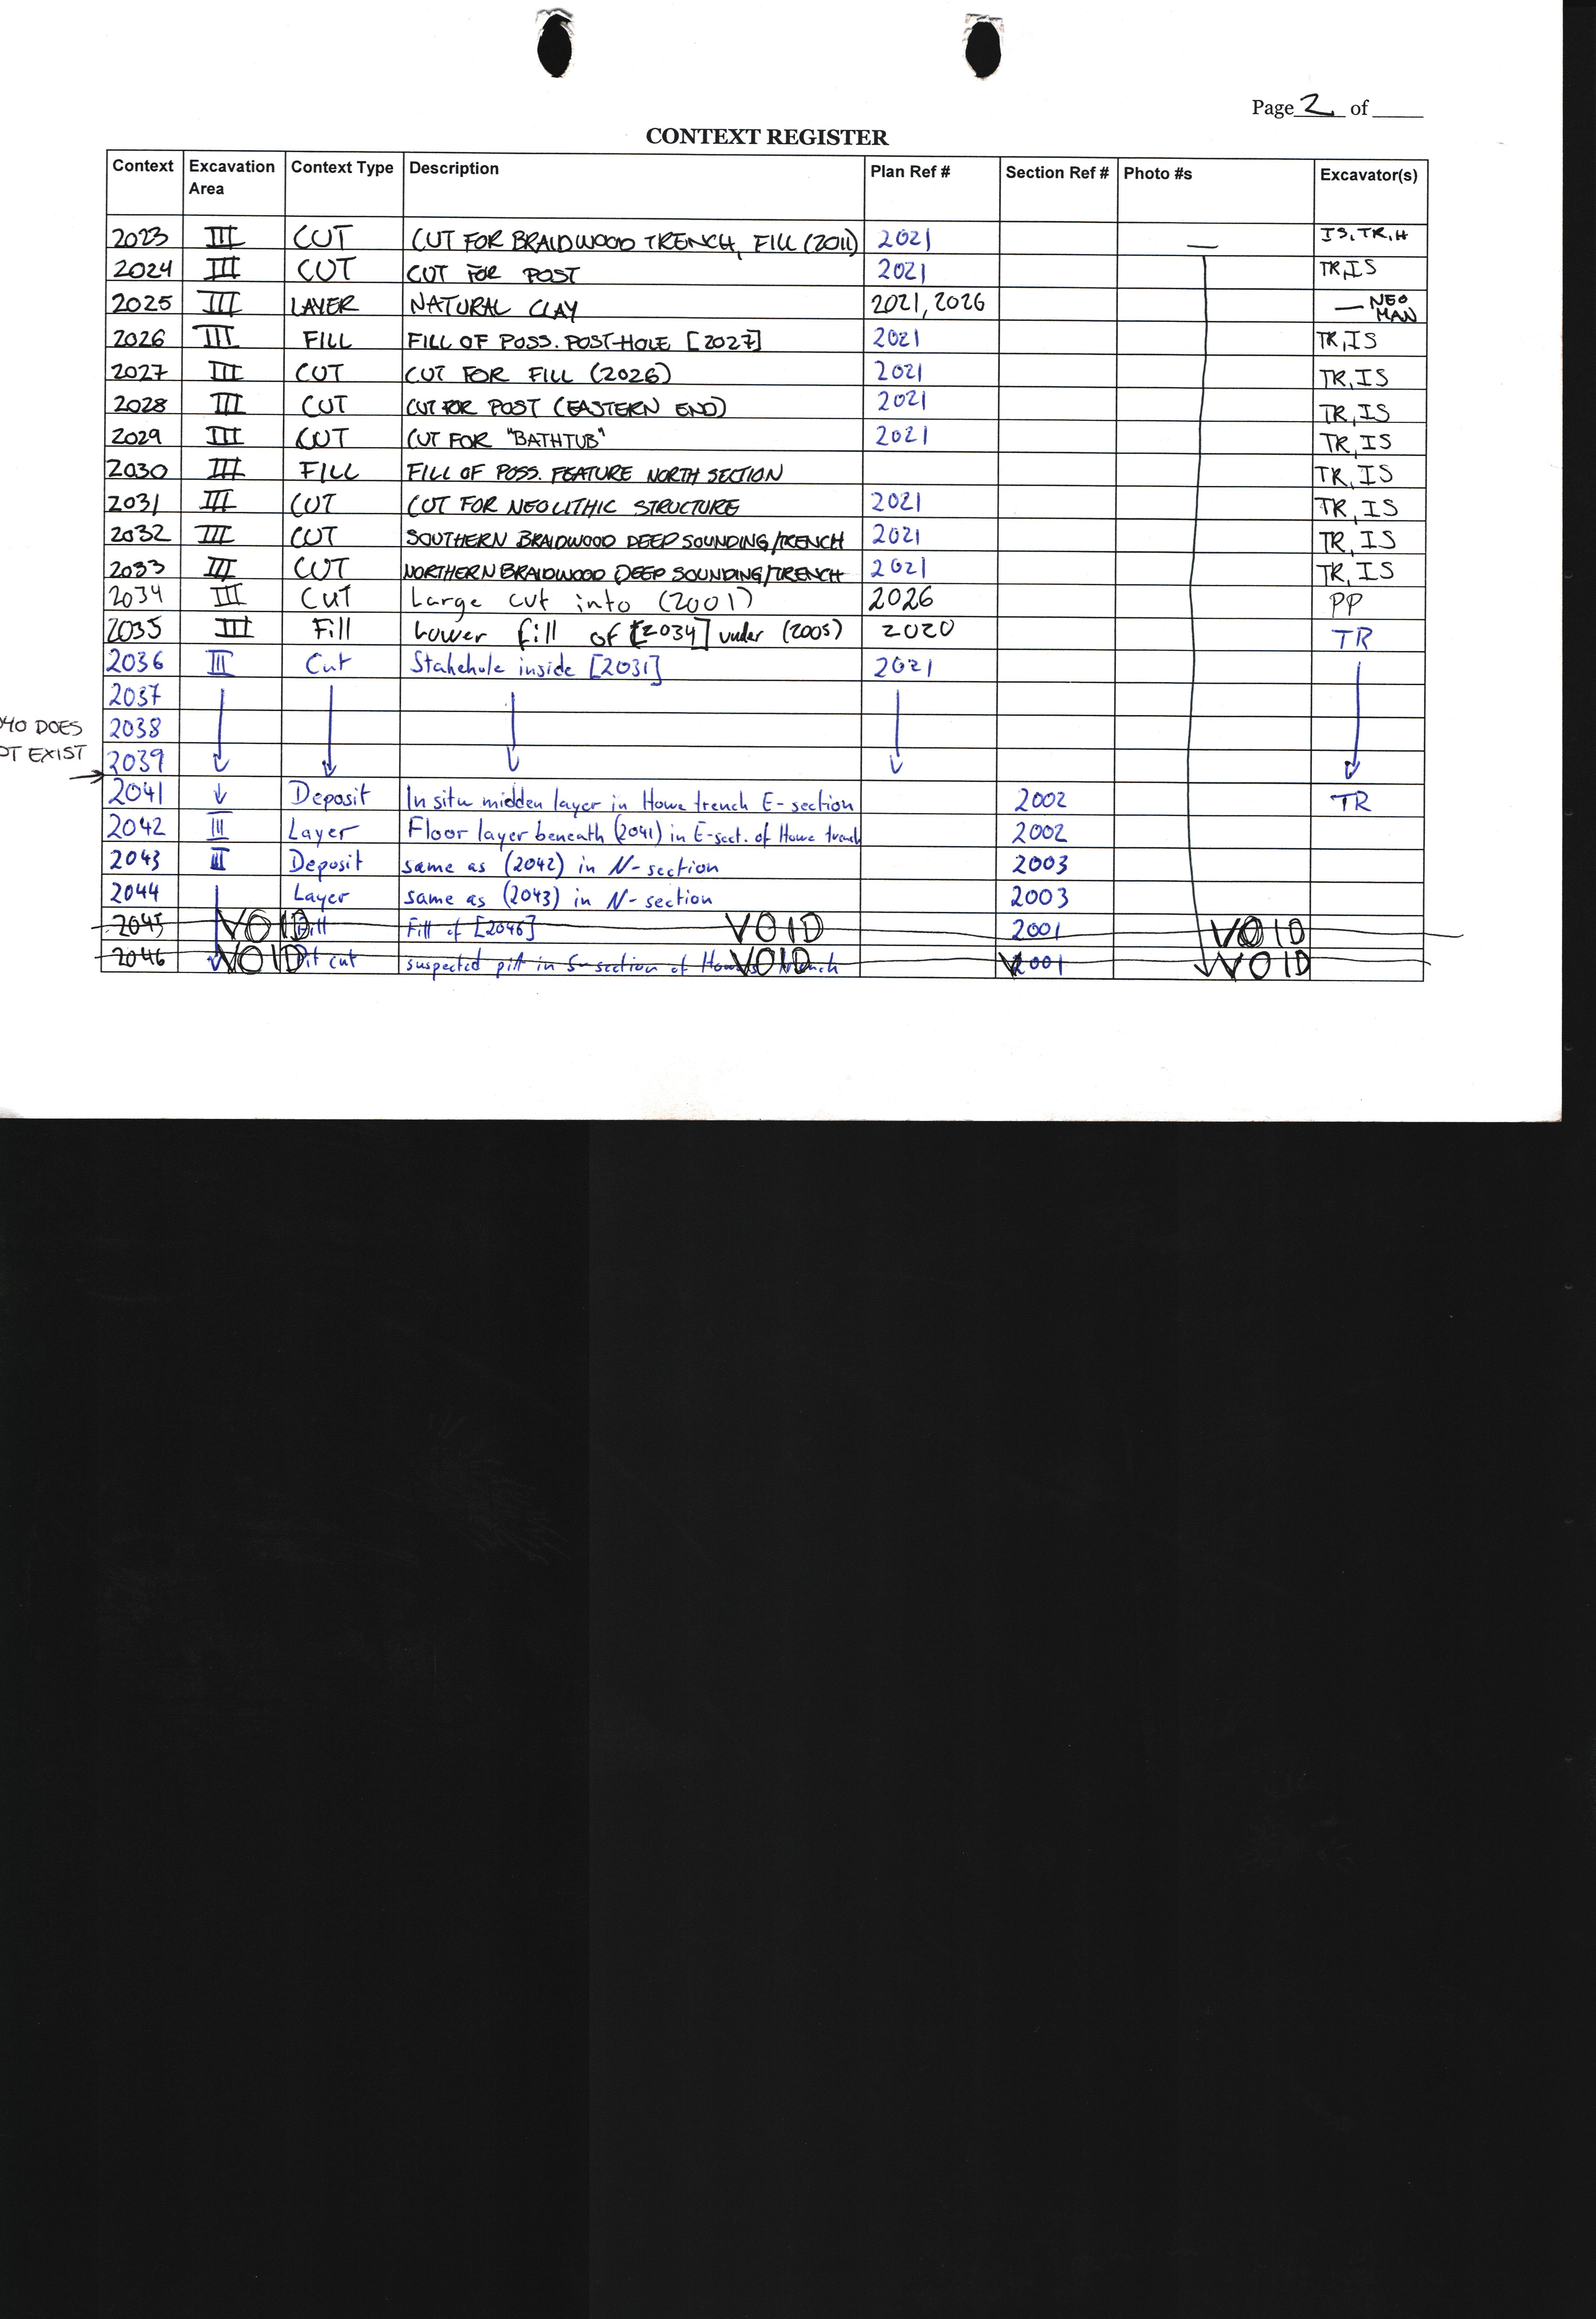 Page 2 of
CONTEXT REGISTER
Context Excavation Area Context Type Description Plan Ref # Section Ref # Photo #s Excavator(s)
2023 III CUT CUT FOR BRAIDWOOD TRENCH, FILL (2011) 2021 — IS, TR, H
2024 III CUT CUT FOR POST 2021 TR, IS
2025 III LAYER NATURAL CLAY 2021, 2026 — NEO MAN
2026 III FILL FILL OF POSS. POST-HOLE [2027] 2021 TR, IS
2027 III CUT CUT FOR FILL (2026) 2021 TR, IS
2028 III CUT CUT FOR POST (EASTERN END) 2021 TR, IS
2029 III CUT CUT FOR "BATHTUB" 2021 TR, IS
2030 III FILL FILL OF POSS. FEATURE NORTH SECTION TR, IS
2031 III CUT CUT FOR NEOLITHIC STRUCTURE 2021 TR, IS
2032 III CUT SOUTHERN BRAIDWOOD DEEP SOUNDING/TRENCH 2021 TR, IS
2033 III CUT NORTHERN BRAIDWOOD DEEP SOUNDING/TRENCH 2021 TR, IS
2034 III CUT Large cut into (2001) 2026 PP
2035 III Fill Lower fill of [2034] under (2005) 2020 TR
2036 III Cut Stakehole inside [2031] 2021
2037
40 DOES 2038
OT EXIST 2039
2041 Deposit In situ midden layer in Howe trench E-section 2002 TR
2042 III Layer Floor layer beneath (2041) in E-sect. of Howe trench 2002
2043 III Deposit same as (2042) in N-section 2003
2044 Layer same as (2043) in N-section 2003
2045 VOID Fill Fill of [2046] VOID 2001 VOID
2046 VOID Pit cut suspected pit in S-section of Howe trench VOID 2001 VOID